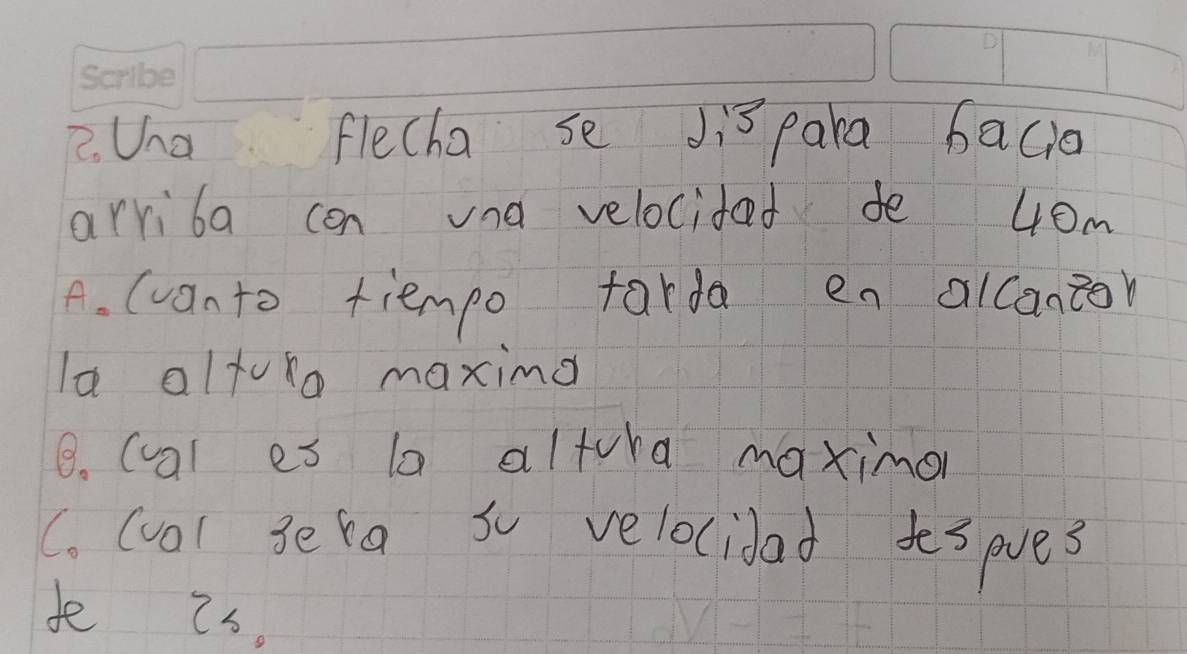 Scribe
D M
2. Una flecha se dispara hacia
arriba con una velocidad de 40m
A. Cuanto tiempo tarda en alcanzar
la altura maxima
B. Cual es la altura maxima
C. Cual sera su velocidad despues
de 2s.